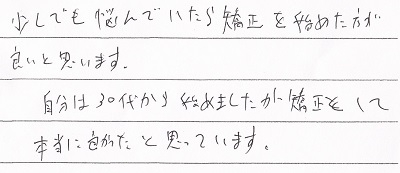 少しでも悩んでいたら矯正を始めた方が
良いと思います。
自分は30代から始めましたが矯正をして
本当に良かったと思っています。